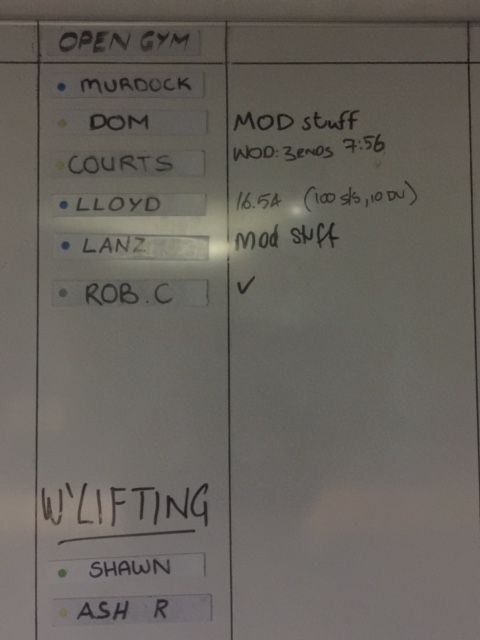 OPEN GYM
MURDOCK
DOM MOD stuff
COURTS WOD: 3 ends 7:56
LLOYD 16.54 (100 s/s, 10 DU)
LANZ Mod stuff
ROB.C ✓
W'LIFTING
SHAWN
ASH R